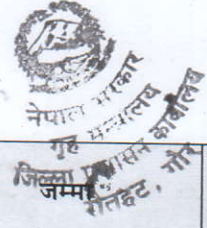 नेपाल सरकार
गृह मन्त्रालय
जिल्ला प्रशासन कार्यालय
रौतहट, गौर
जम्मा